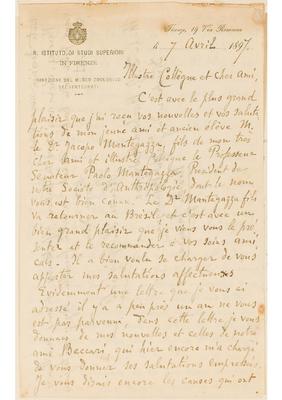 Firenze, 19 Via Romana
R. ISTITUTO DI STUDI SUPERIORI
IN FIRENZE
DIREZIONE DEL MUSEO ZOOLOGICO
DEI VERTEBRATI
le 7 Avril 1897.
Illustre Collègue et cher Ami,
C'est avec le plus grand
plaisir que j'ai reçu vos nouvelles et vos saluta
tions de mon jeune ami et ancien élève M.
le Dr Jacopo Mantegazza, fils de mon très
cher ami et illustre Collègue le Professeur
Senateur Paolo Mantegazza, President de
notre Societé d'Anthropologie, dont le nom
vous est bien connu. Le Dr Mantegazza fils
va retourner au Brésil et c'est avec un
bien grand plaisir que je viens vous le pré
senter et le recommander à vos soins ami
cals. Il a bien voulu se charger de vous
apporter mes salutations affectueuses
Evidemment une lettre que je vous ai
adressé il y a à peu près un an ne vous
est pas parvenue, dans cette lettre je vous
donnais de mes nouvelles et celles de notre
ami Beccari, qui hier encore m'a chargé
de vous donner ses salutations empressées.
Je vous disais encore les causes qui ont